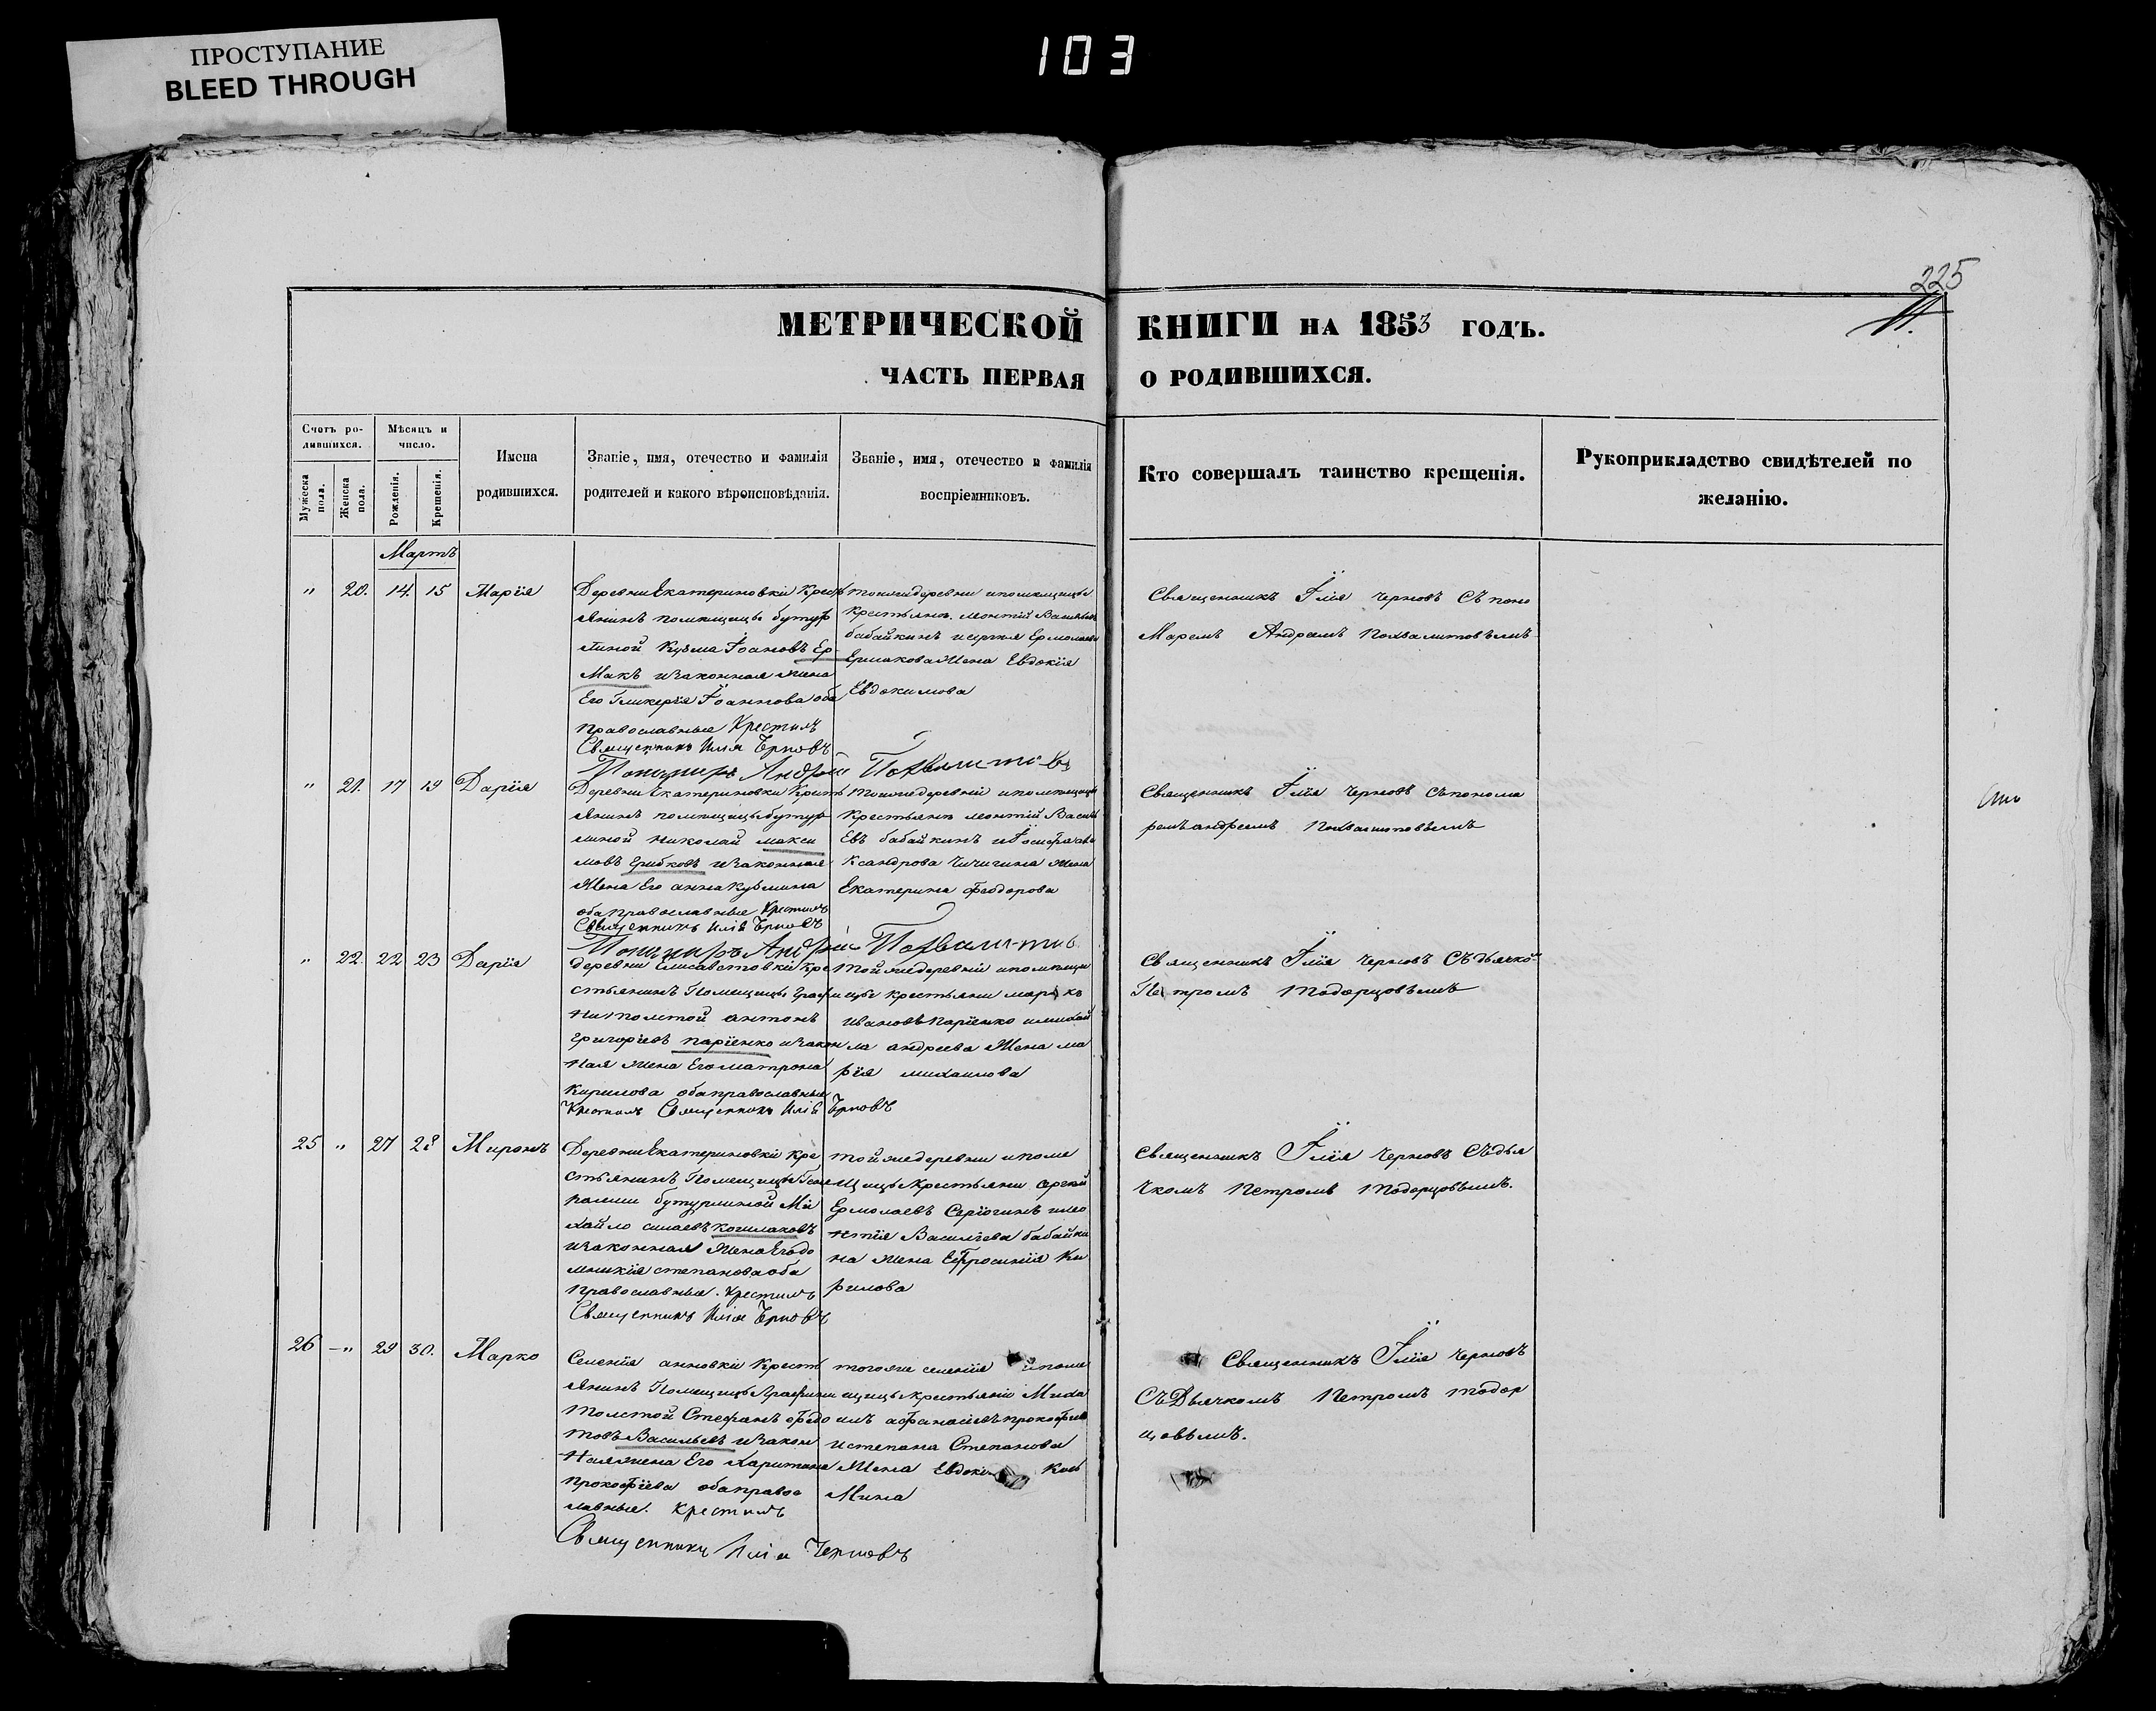 ПРОСТУПАНИЕ
BLEED THROUGH
103
225
11.
МЕТРИЧЕСКОЙ КНИГИ НА 1853 ГОДЪ.
ЧАСТЬ ПЕРВАЯ О РОДИВШИХСЯ.
Счетъ ро-
дившихся.
Мужеска
пола.
Женска
пола.
Мѣсяцъ и
число.
Рожденія.
Крещенія.
Имена
родившихся.
Званіе, имя, отечество и фамилія
родителей и какого вѣроисповѣданія.
Званіе, имя, отечество и фамилія
воспріемниковъ.
Кто совершалъ таинство крещенія.
Рукоприкладство свидѣтелей по
желанію.
Мартъ
" 20. 14. 15 Марія
Деревни Екатериновки Крест
янинъ помѣщицы бутур
линой Кузма Іоановъ Ер-
макъ изаконная жена
Его Гликерія Іоаннова оба
православные Крестилъ
Священникъ Илія Черновъ
Пономарь Андрей Похвалитовъ
тойжедеревни ипомѣщицы
крестьянъ леонтій Васильевъ
бабайкинъ Ермолаева
Ермакова жена Евдокія
Евдокимова
Священникъ Іліа Черновъ Съ поно
Маремъ Андреемъ Похвалитовымъ
" 21. 17 19 Дарія
Деревни Екатериновки Крест
янинъ помѣщицы бутур
линой николай макси
мовъ грибковъ изаконная
жена Его анна Кузмина
оба православные Крестилъ
Священникъ Илія Черновъ
Пономарь Андрей Похвалитовъ
тойжедеревни ипомѣщицы
Крестьянъ леонтій Василь
Евъ бабайкинъ иІосифа але
Ксандрова Чичигина жена
Екатерина Феодорова
Священникъ Іліа Черновъ съ понома
ремъ андреемъ Похвалитовымъ
" 22. 22 23 Дарія
деревни Елисаветовки кре
стьянинъ Помещицы Графи
ни толстой антонъ
григоріевъ паріенко изакон
ная жена Его матрона
Кирилова оба православные
Крестилъ Священникъ Илія Черновъ
Тойжедеревни ипомѣщи
цы крестьяни марко
ивановъ паріенко имихай
ла андреева жена ма
рія михаилова
Священникъ Іліа Черновъ Съдьячко
Петромъ тодорцовымъ
25 " 27 28 Миронъ
Деревни Екатериновки Кре
стьянинъ Помещицы Гене
ралши бутурлиной Ми
хайло силаевъ кошлаковъ
изаконная жена Егодо
мникія степанова оба
православные. Крестилъ
Священникъ Илія Черновъ
тойжедеревни ипоме
щицы крестьяни сергей
Ермолаевъ Серіогинъ илео
нтія Васильева бабайки
на жена Ефросинія Ки
рилова
Священникъ Іліа Черновъ Съдья
чкомъ Петромъ тодорцовымъ.
26 " 29 30. Марко
Селенія анновки Крест
янинъ Помещицы Графини
Толстой Стефанъ
товъ Васильевъ изакон
ная жена Его Харитина
прокофіева оба правос
лавные. Крестилъ
Священникъ Илія Черновъ
тогоже селенія ипоме
щицы крестьяни Миха
илъ афанасіевъ прокофіевъ
истепана Степанова
жена Кось
Мина
Священникъ Іліа Черновъ
СъДьячкомъ Петромъ тодор
цовымъ.